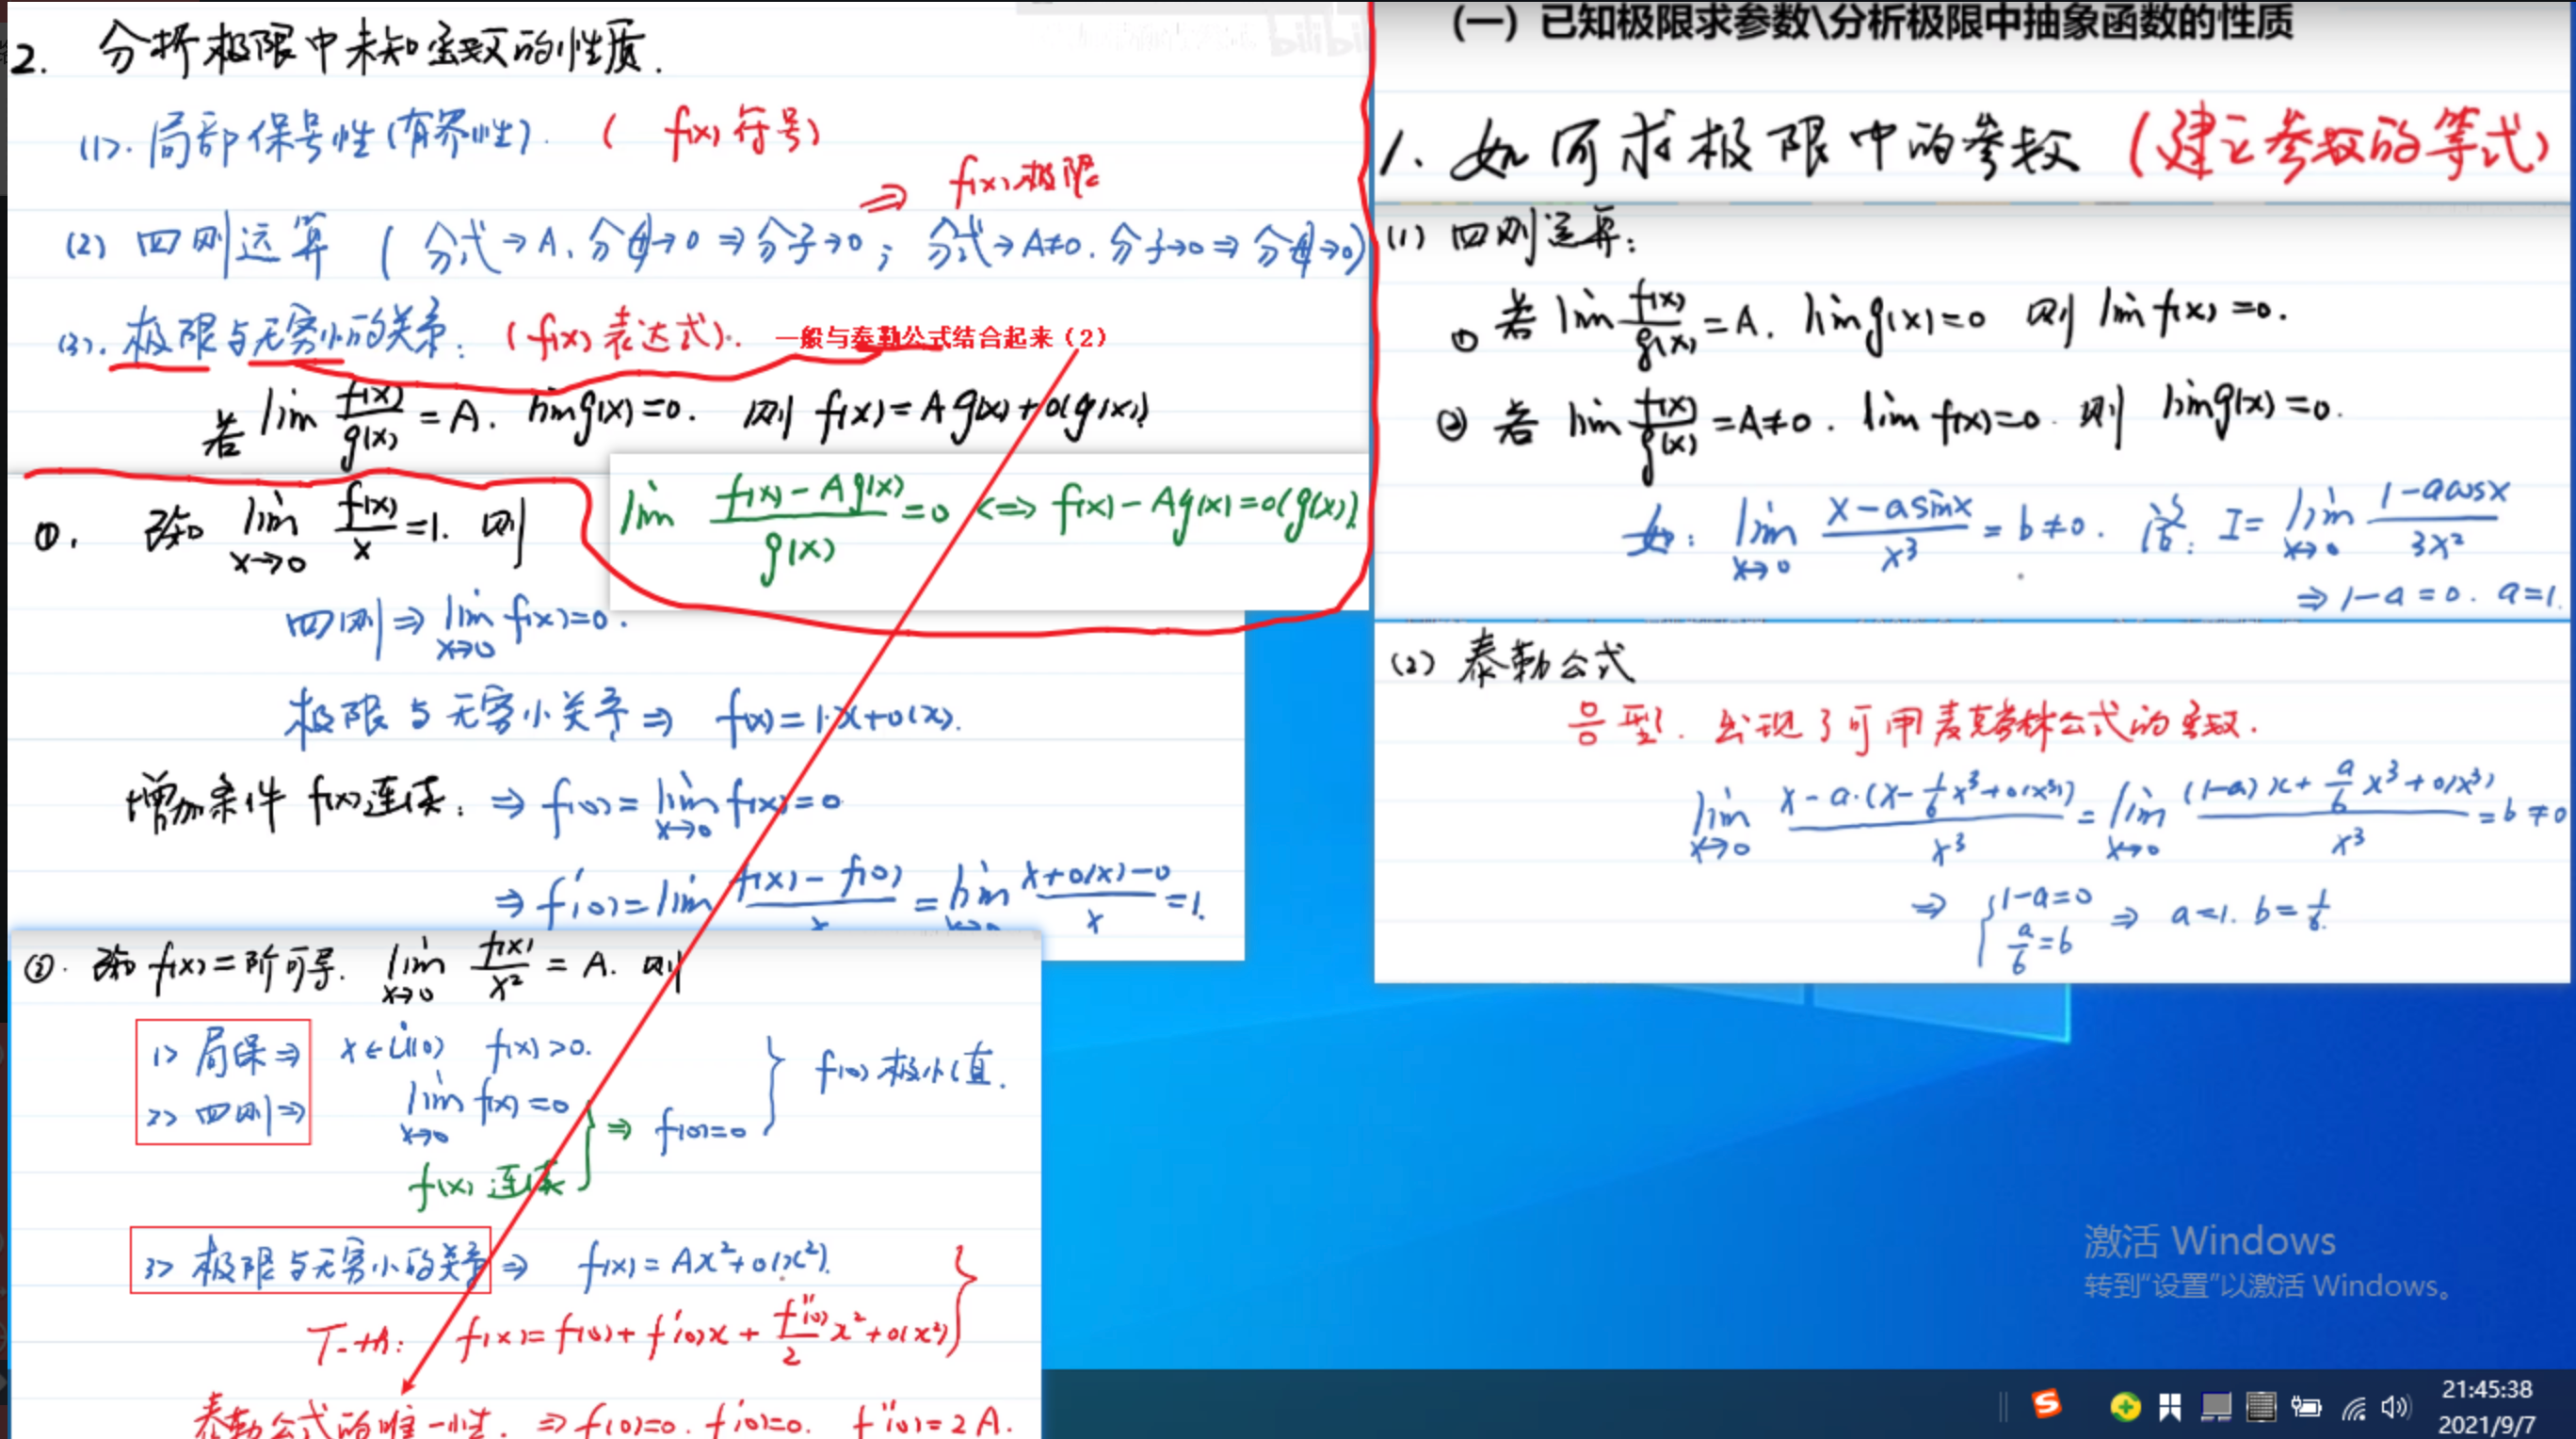 (一) 已知极限求参数\分析极限中抽象函数的性质
1. 如何求极限中的参数 (建立参数的等式)
(1) 四则运算:
① 若 lim f(x)/g(x) = A. lim g(x)=0 则 lim f(x)=0.
② 若 lim f(x)/g(x) = A≠0. lim f(x)=0. 则 lim g(x)=0.
如: lim x→0 (x-asinx)/x³ = b≠0. 洛: I= lim x→0 (1-acosx)/3x²
⇒ 1-a=0. a=1.
(2) 泰勒公式
号型. 出现了可用麦克劳林公式的函数.
lim x→0 (x-a·(x-1/6x³+o(x³)))/x³ = lim x→0 ((1-a)x+a/6x³+o(x³))/x³ = b≠0
⇒ { 1-a=0
a/6=b ⇒ a=1. b=1/6.
2. 分析极限中未知函数的性质.
(1). 局部保号性(有界性). ( f(x)符号)
⇒ f(x)极限
(2) 四则运算 ( 分式→A、分母→0 ⇒ 分子→0 ; 分式→A≠0. 分子→0 ⇒ 分母→0)
(3). 极限与无穷小的关系: (f(x)表达式). 一般与泰勒公式结合起来(2)
若 lim f(x)/g(x) = A. lim g(x)=0. 则 f(x)=Ag(x)+o(g(x))
lim (f(x)-Ag(x))/g(x) =0 <=> f(x)-Ag(x)=o(g(x)).
①. 已知 lim x→0 f(x)/x =1. 则
四则 ⇒ lim x→0 f(x)=0.
极限与无穷小关系 ⇒ f(x)=1·x+o(x).
增加条件 f(x)连续: ⇒ f(0)= lim x→0 f(x)=0
⇒ f'(0)= lim (f(x)-f(0))/x = lim x→0 (x+o(x)-0)/x =1.
②. 已知 f(x)二阶可导. lim x→0 f(x)/x² = A. 则
1> 局保 ⇒ x∈Ů(0) f(x)>0.
2> 四则 ⇒ lim x→0 f(x)=0
f(x)连续 } ⇒ f(0)=0 } f(0)极小值.
3> 极限与无穷小的关系 ⇒ f(x)=Ax²+o(x²).
f(x)=f(0)+f'(0)x+f''(0)/2 x²+o(x²) }
泰勒公式的唯一性. ⇒ f(0)=0. f'(0)=0. f''(0)=2A.
激活 Windows
转到“设置”以激活 Windows。
21:45:38
2021/9/7